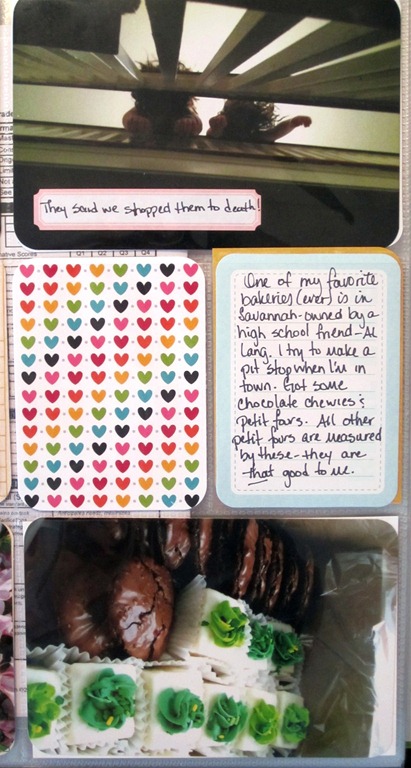 They said we shopped them to death!
Q1 Q2 Q3 Q4
One of my favorite
bakeries (ever) is in
Savannah-owned by a
high school friend-Al
Lang. I try to make a
pit stop when I'm in
town. Got some
chocolate chewies &
petit fours. All other
petit furs are measured
by these- they are
that good to me.